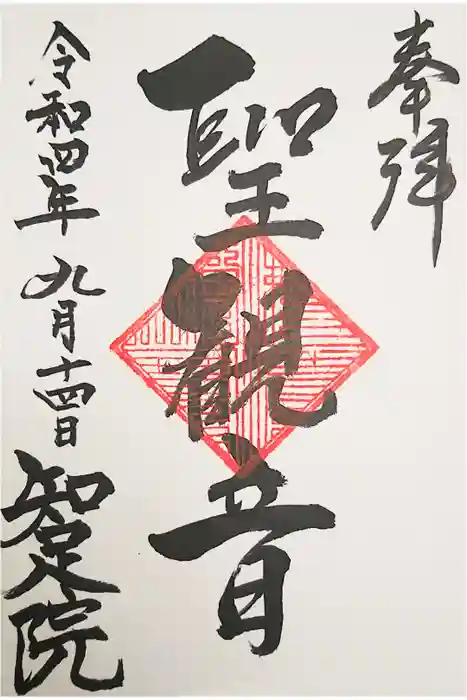 奉拝
聖観音
令和四年 九月十四日
知足院